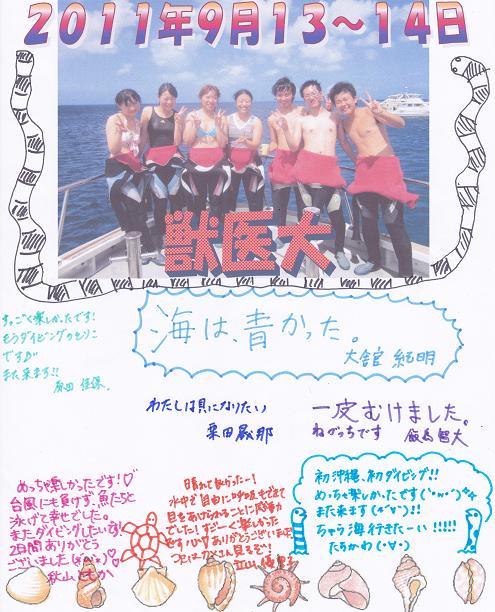 2011年9月13～14日
獣医大
すっごく楽しかったです！
もうダイビングのとりこ
です♪
また来ます!!
原田 佳保
海は、青かった。
大舘 純明
わたしは貝になりたい
栗田 厳那
一皮むけました。
ねがっちです 飯島 智大
めっちゃ楽しかったです！♡
台風にも負けず、魚たちと
泳げて幸せでした。
またダイビングしたいです！
2日間ありがとう
ございました(*^∀^*)♡
秋山ともか
晴れて良かったー！
水中で自由に呼吸もできて
目をあけられることに感動
でした！すごーく楽しかった
です！♡ ありがとうございました
つぎはカメさん見るぞ！
立山
初沖縄、初ダイビング!!
めっちゃ楽しかったです(*'ω'*)
また来ます(*'∀')!!
ちゅら海行きたーい!!!!!
たちかわ(・∀・)